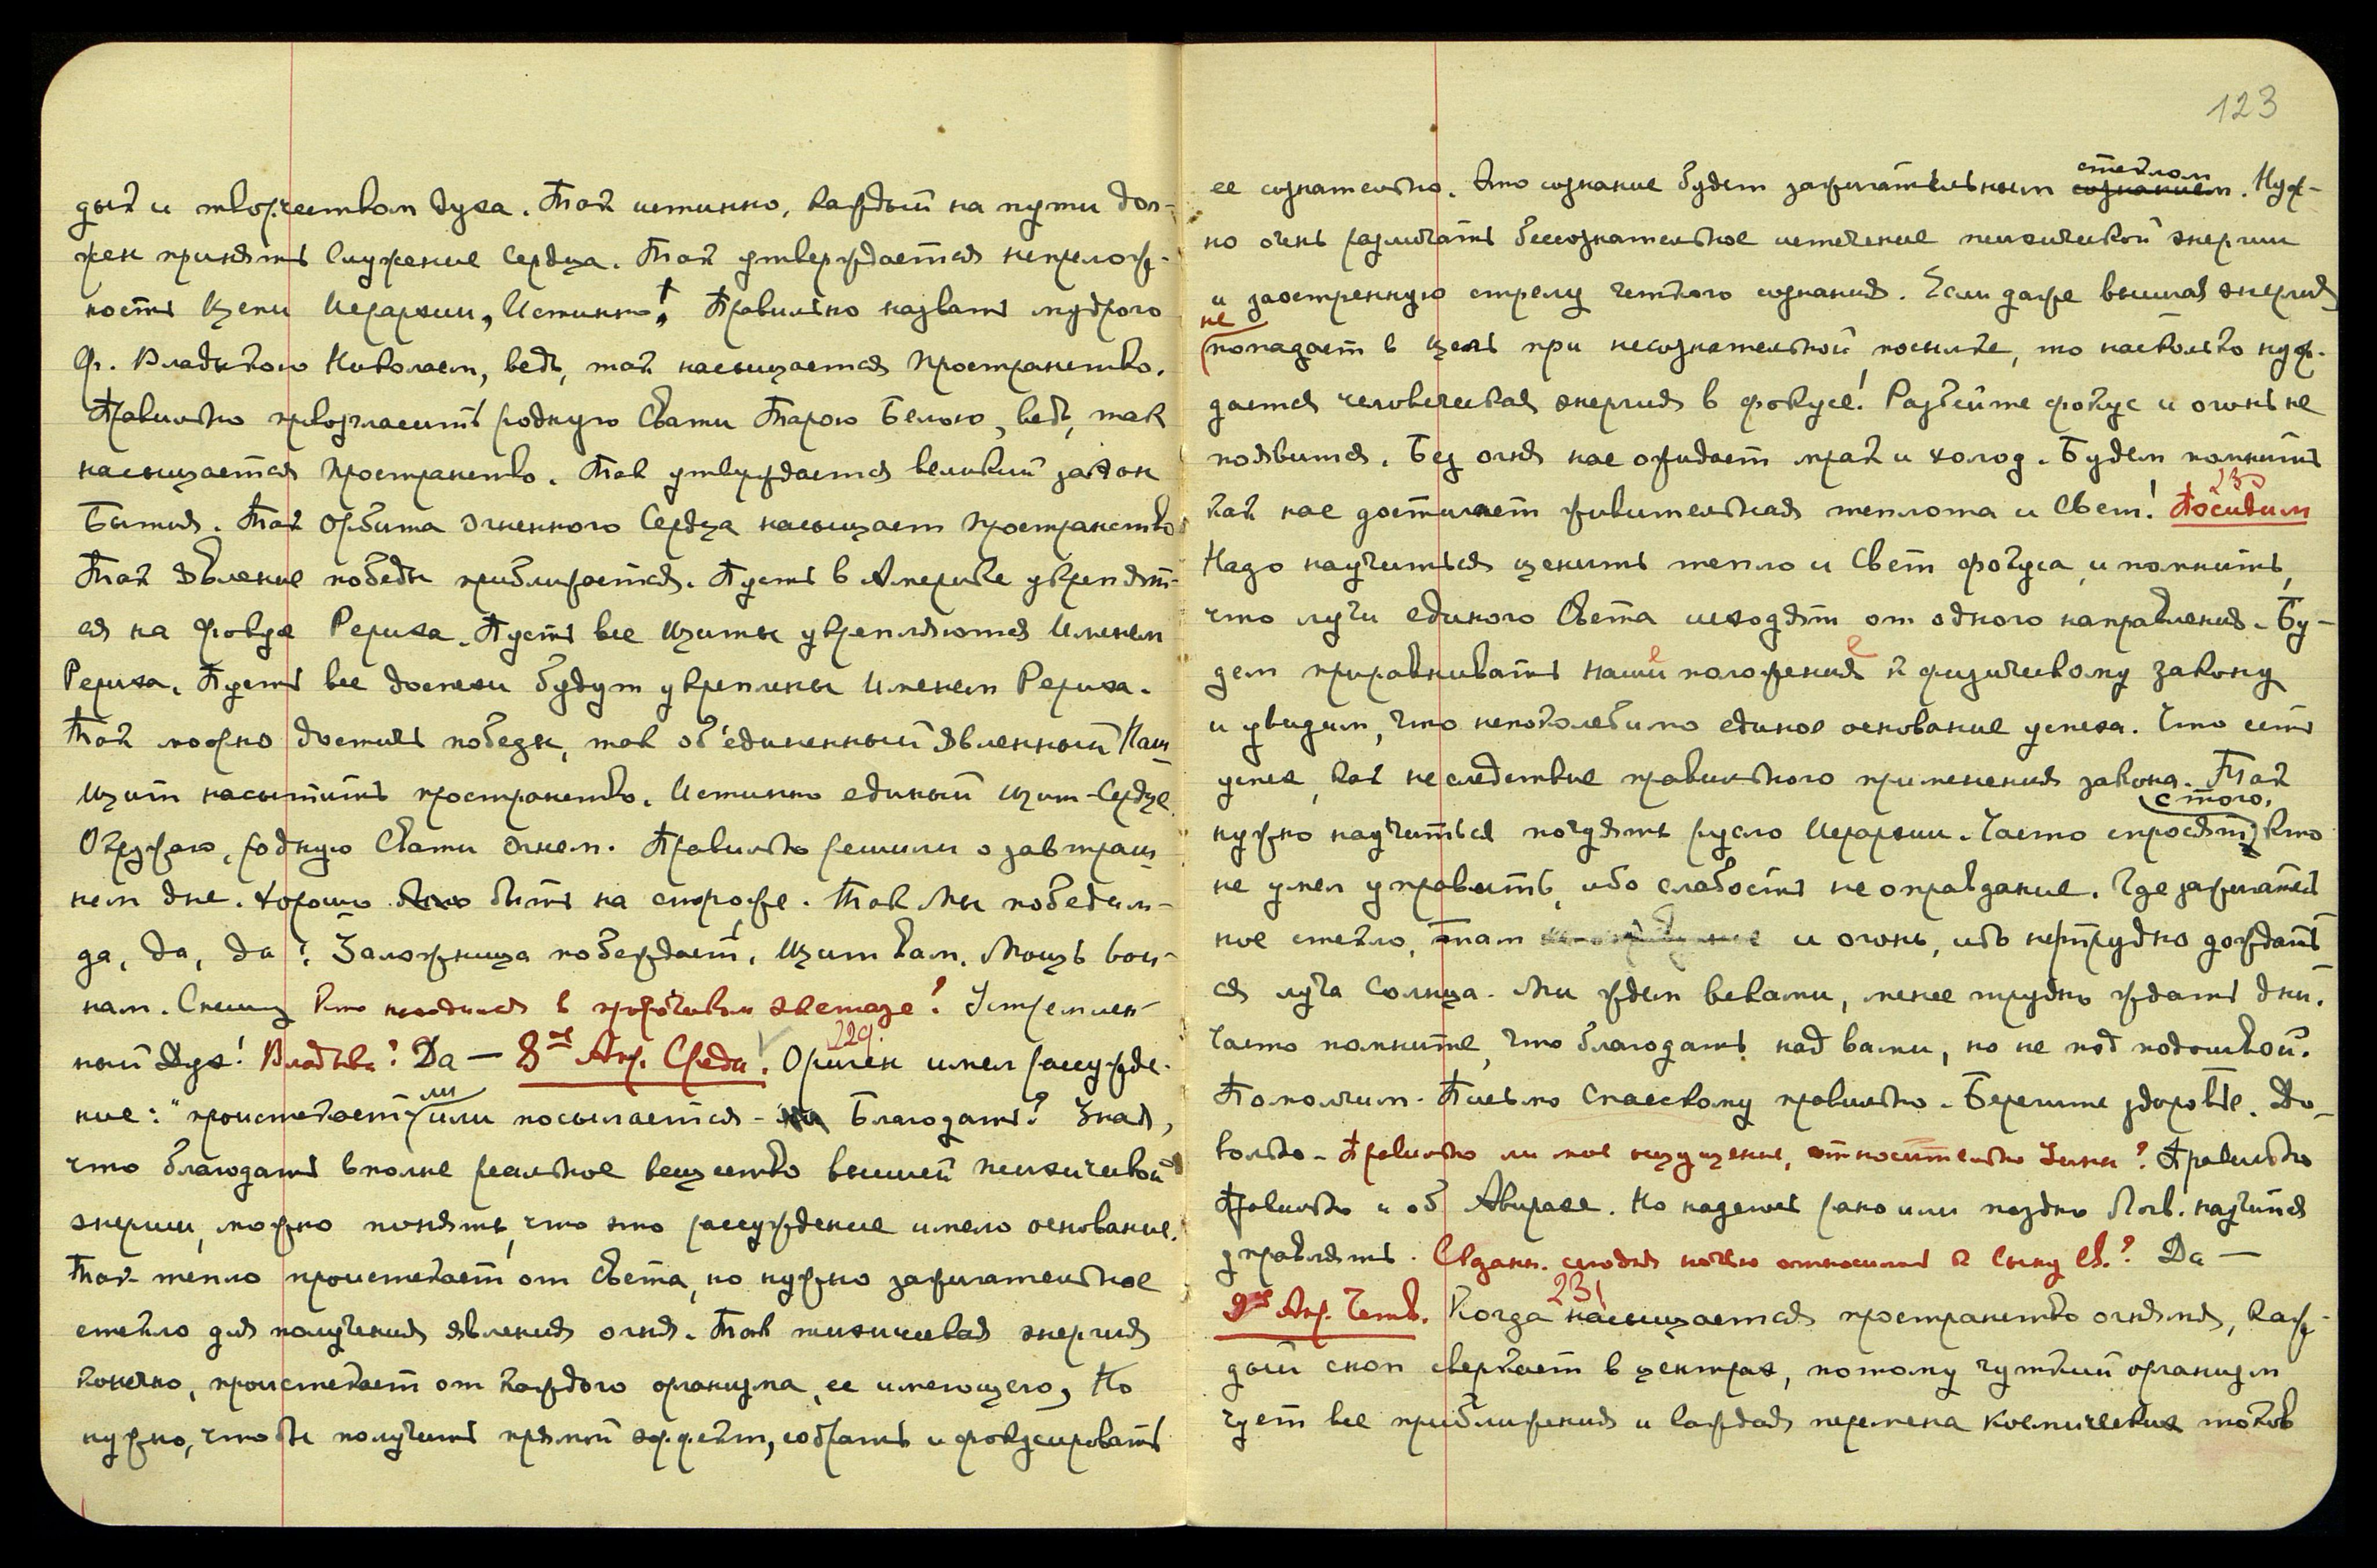 дый и творчеством духа. Так истинно, каждый на пути дол-
жен принять Служение Сердца. Так утверждается непрелож-
ность Цепи Иерархии, Истинно! Правильно назвать мудрого
Ф. Владыкою Николаем, ведь, так насыщается Пространство.
Правильно провозгласить родную Свати Тарою Белою, ведь, так
насыщается Пространство. Так утверждается великий закон
Бытия. Так Орбита Огненного Сердца насыщает Пространство
Так явление победы приближается. Пусть в Америке укрепят-
ся на фокусе Рериха. Пусть все щиты укрепляются Именем
Рериха. Пусть все доспехи будут укреплены Именем Рериха.
Так можно достичь победы, так об'единенный явленный Наш
Щит насытить пространство. Истинно единый щит - Сердце
Окружаю, родную Свати огнем. Правильно решили о завтраш-
нем дне. Хорошо быть на стороже. Так Мы победим -
да, да, да! Заложница побеждает, Щит вам. Мощь вои-
нам. Спешу Кто находился в пророческом экстазе? Устремлен-
ный Дух! Владыка? Да — 8ое Апр. Среда! 229 Ориген имел рассужде-
ние: "проистекает ли или посылается - Благодать? Зная,
что благодать вполне реальное вещество высшей психической
энергии, можно понять, что это рассуждение имело основание.
Так тепло проистекает от Света, но нужно зажигательное
стекло для получения явления огня. Так психическая энергия
конечно, проистекает от каждого организма, ее имеющего, Но
нужно, чтобы получить прямой эффект, собрать и фокусировать
123
ее сознательно. Это сознание будет зажигательным сознанием стеклом. Нуж-
но очень различать бессознательное истечение психической энергии
и заостренную стрелу четкого сознания. Если даже высшая энергия
не попадает в цель при несознательной посылке, то насколько нуж-
дается человеческая энергия в фокусе! Разбейте фокус и огонь не
появится. Без огня нас ожидает мрак и холод. Будем помнить
как нас достигает живительная теплота и Свет! 230 Посидим
Надо научиться ценить тепло и Свет фокуса, и помнить,
что лучи единого Света исходят от одного направления. Бу-
дем приравнивать наши е положения е к физическому закону
и увидим, что непоколебимо единое основание успеха. Что есть
успех, как не следствие правильного применения закона. Так
нужно научиться понять русло Иерархии. Часто спросят с того, кто
не умел управить, ибо слабость не оправдание. Где зажигатель-
ное стекло, там и огонь, ибо нетрудно дождать-
ся луча Солнца. Мы ждем веками, менее трудно ждать дни.
Часто помните, что благодать над вами, но не под подошвой.
Помолчим. Письмо Спасскому правильно. Берегите здоровье. До-
вольно - Правильно ли мое ощущение, относительно Зины? Правильно
Правильно и об Авирахе. Но надеюсь рано или поздно Логв. научится
управлять. Сказан. сегодня ночью относилось к Сыну Св.? Да —
9ое Апр. Четв. 231 Когда насыщается пространство огнями, каж-
дый сноп сверкает в центрах, потому чуткий организм
чует все приближения и каждая перемена космических токов